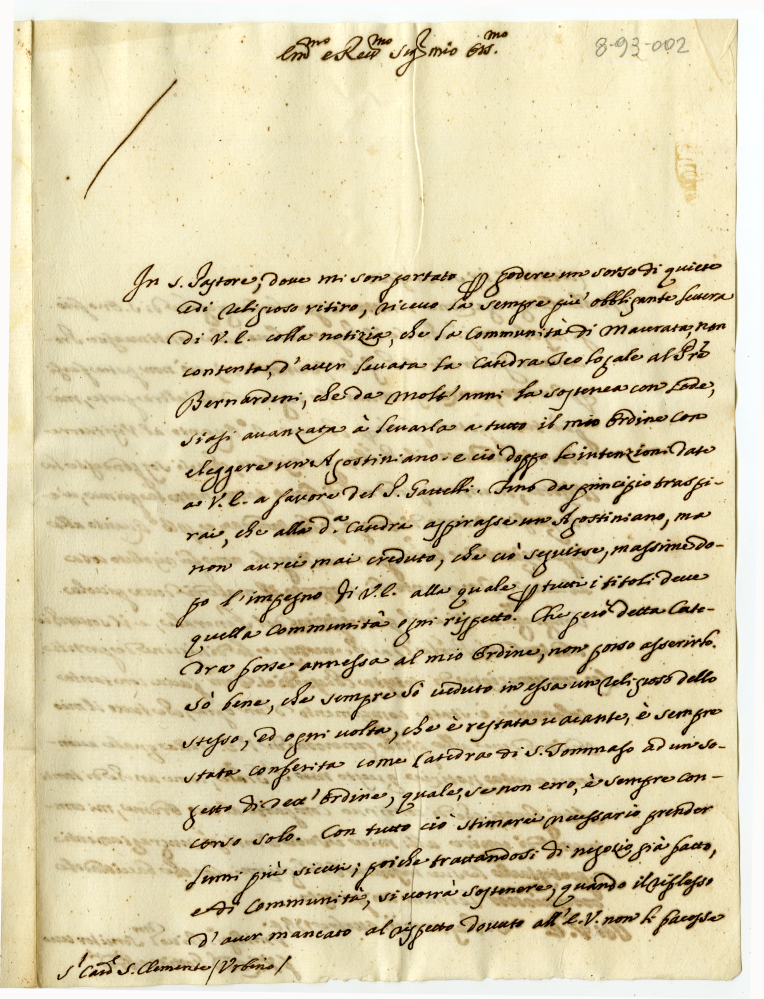 Em.mo e Rev.mo Sig.r mio Oss.mo
8-93-002
In S. Pastore, dove mi son portato p godere un sorso di quiete
e di religioso ritiro, ricevo la sempre più obbligante lettera
di V.E. colla notizia, che la Communità di Macerata, non
contenta, d'aver levata la Catedra Teologale al Pre
Bernardini, che da molt'anni la sostenea con lode,
siasi avanzata à levarla a tutto il mio Ordine con
eleggere un Agostiniano. e ciò doppo le intenzioni date
a V.E. a favore del P. Gattelli. Fino da principio traspi-
rai, che alla d.a Catedra aspirasse un Agostiniano, ma
non avrei mai creduto, che ciò seguisse, massime do-
po l'impegno di V.E. alla quale p tutti i titoli deve
quella Communità ogni rispetto. Che però detta Cate-
dra fosse annessa al mio Ordine, non posso asserirlo.
Sò bene, che sempre hò veduto in essa un religioso dello
stesso, ed ogni volta, che è restata vacante, è sempre
stata conferita come Catedra di S. Tommaso ad un so-
getto di dett'Ordine, quale, se non erro, è sempre con-
corso solo. Con tutto ciò stimarei necessario prender
lumi più sicuri; poiche trattandosi di negozio già fatto,
e di Communità, si vorrà sostenere, quando il riflesso
d'aver mancato al rispetto dovuto all'E.V. non li facesse
S.r Card.l S. Clemente /Urbino/